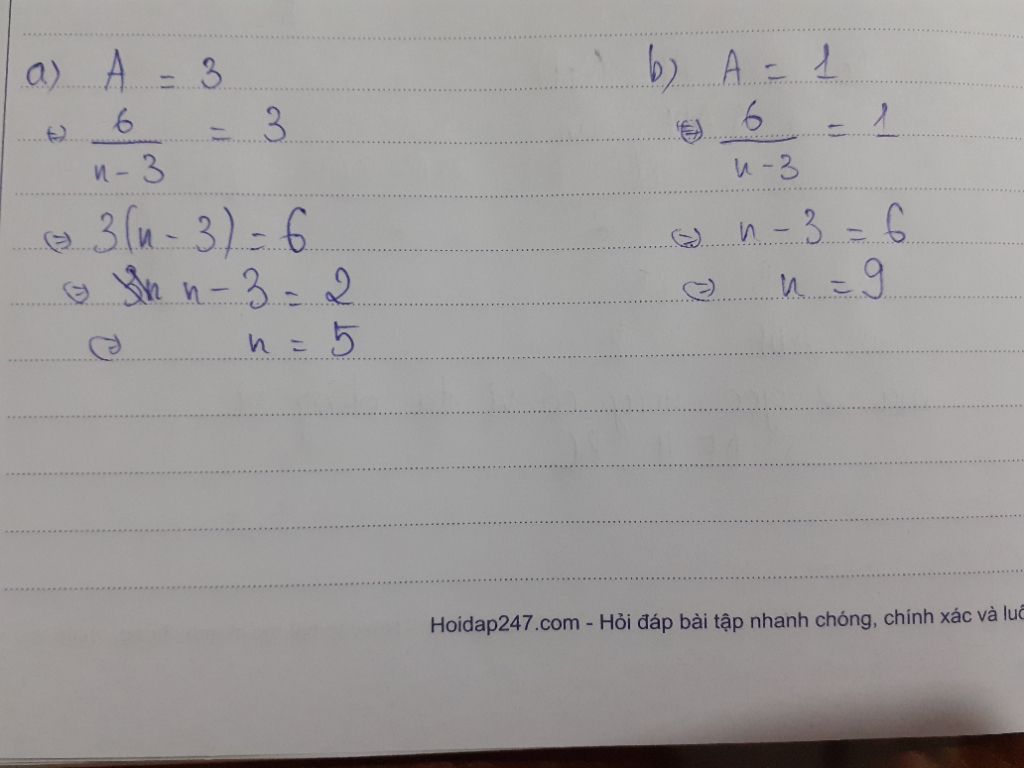 a) A = 3
⇔ 6/(n-3) = 3
⇔ 3(n - 3) = 6
⇔ n - 3 = 2
⇔ n = 5
b) A = 1
⇔ 6/(n-3) = 1
⇔ n - 3 = 6
⇔ n = 9
Hoidap247.com - Hỏi đáp bài tập nhanh chóng, chính xác và